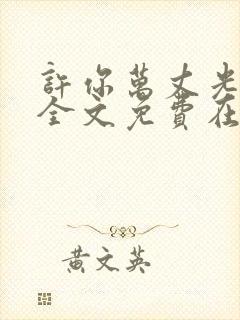 許你萬丈光
全文免費在
黃文英